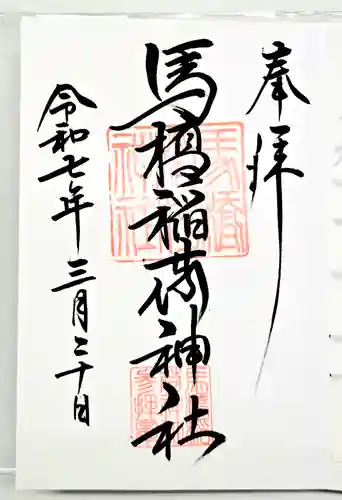 奉拝
馬橋稲荷神社
令和七年三月二十日